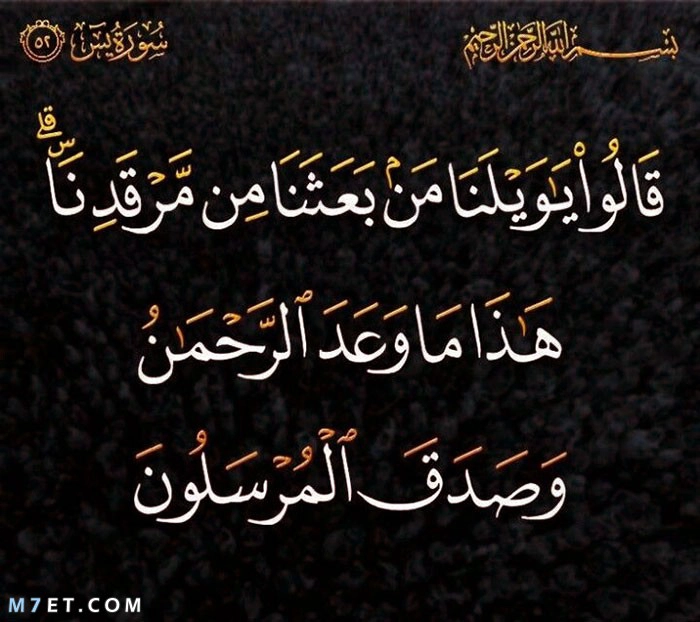 بِسْمِ اللَّهِ الرَّحْمَٰنِ الرَّحِيمِ
سُورَةُ يسٓ ٥٢
قَالُوا۟ يَٰوَيْلَنَا مَنۢ بَعَثَنَا مِن مَّرْقَدِنَاۜ ۗ
هَٰذَا مَا وَعَدَ ٱلرَّحْمَٰنُ
وَصَدَقَ ٱلْمُرْسَلُونَ
M7ET.COM